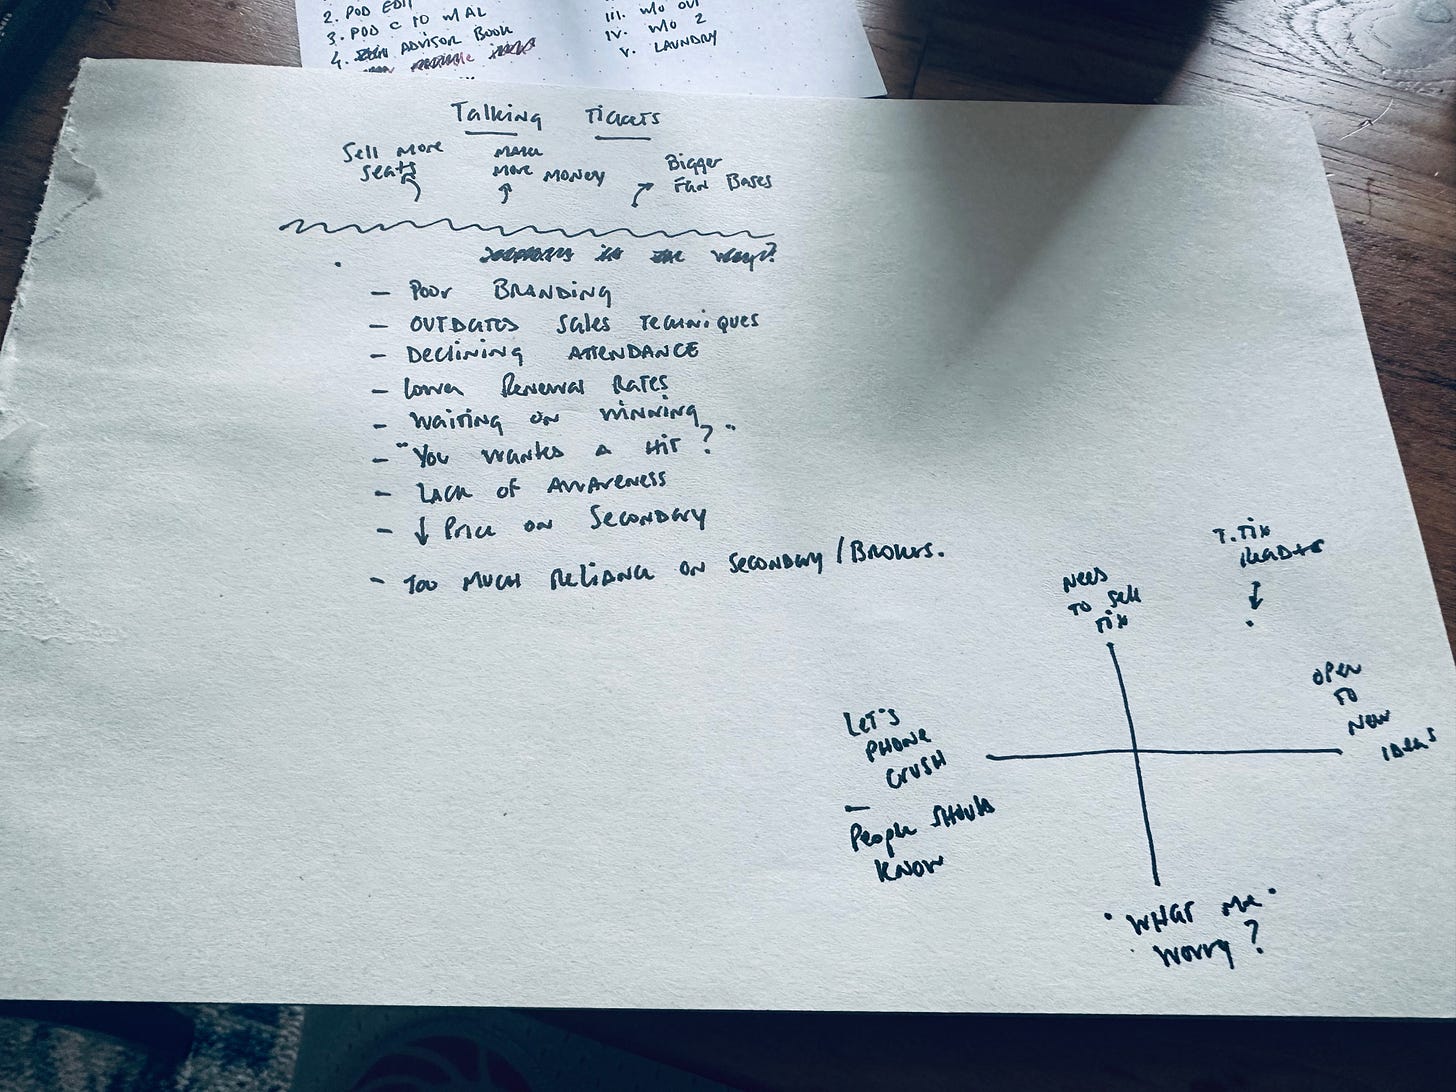 2. POD EDIT
3. POD C TO MAL
4. ADVISOR BOOK
III. W/O OUT
IV. W/O 2
V. LAUNDRY
Talking Tickets
Sell More
Seats
MAKE
MORE MONEY
Bigger
Fan Bases
in the way?
- Poor BRANDING
- OUTDATED Sales Techniques
- Declining ATTENDANCE
- Lower Renewal Rates
- Waiting on Winning
- "You wanted a Hit?"
- Lack of Awareness
- ↓ Price on Secondary
- Too Much Reliance on Secondary/Brokers.
T.Tix
Reader
↓
Need
To Sell
Tix
Open
To
New
Ideas
Let's
PHONE
CRUSH
-
People Should
Know
"What Me"
Worry?